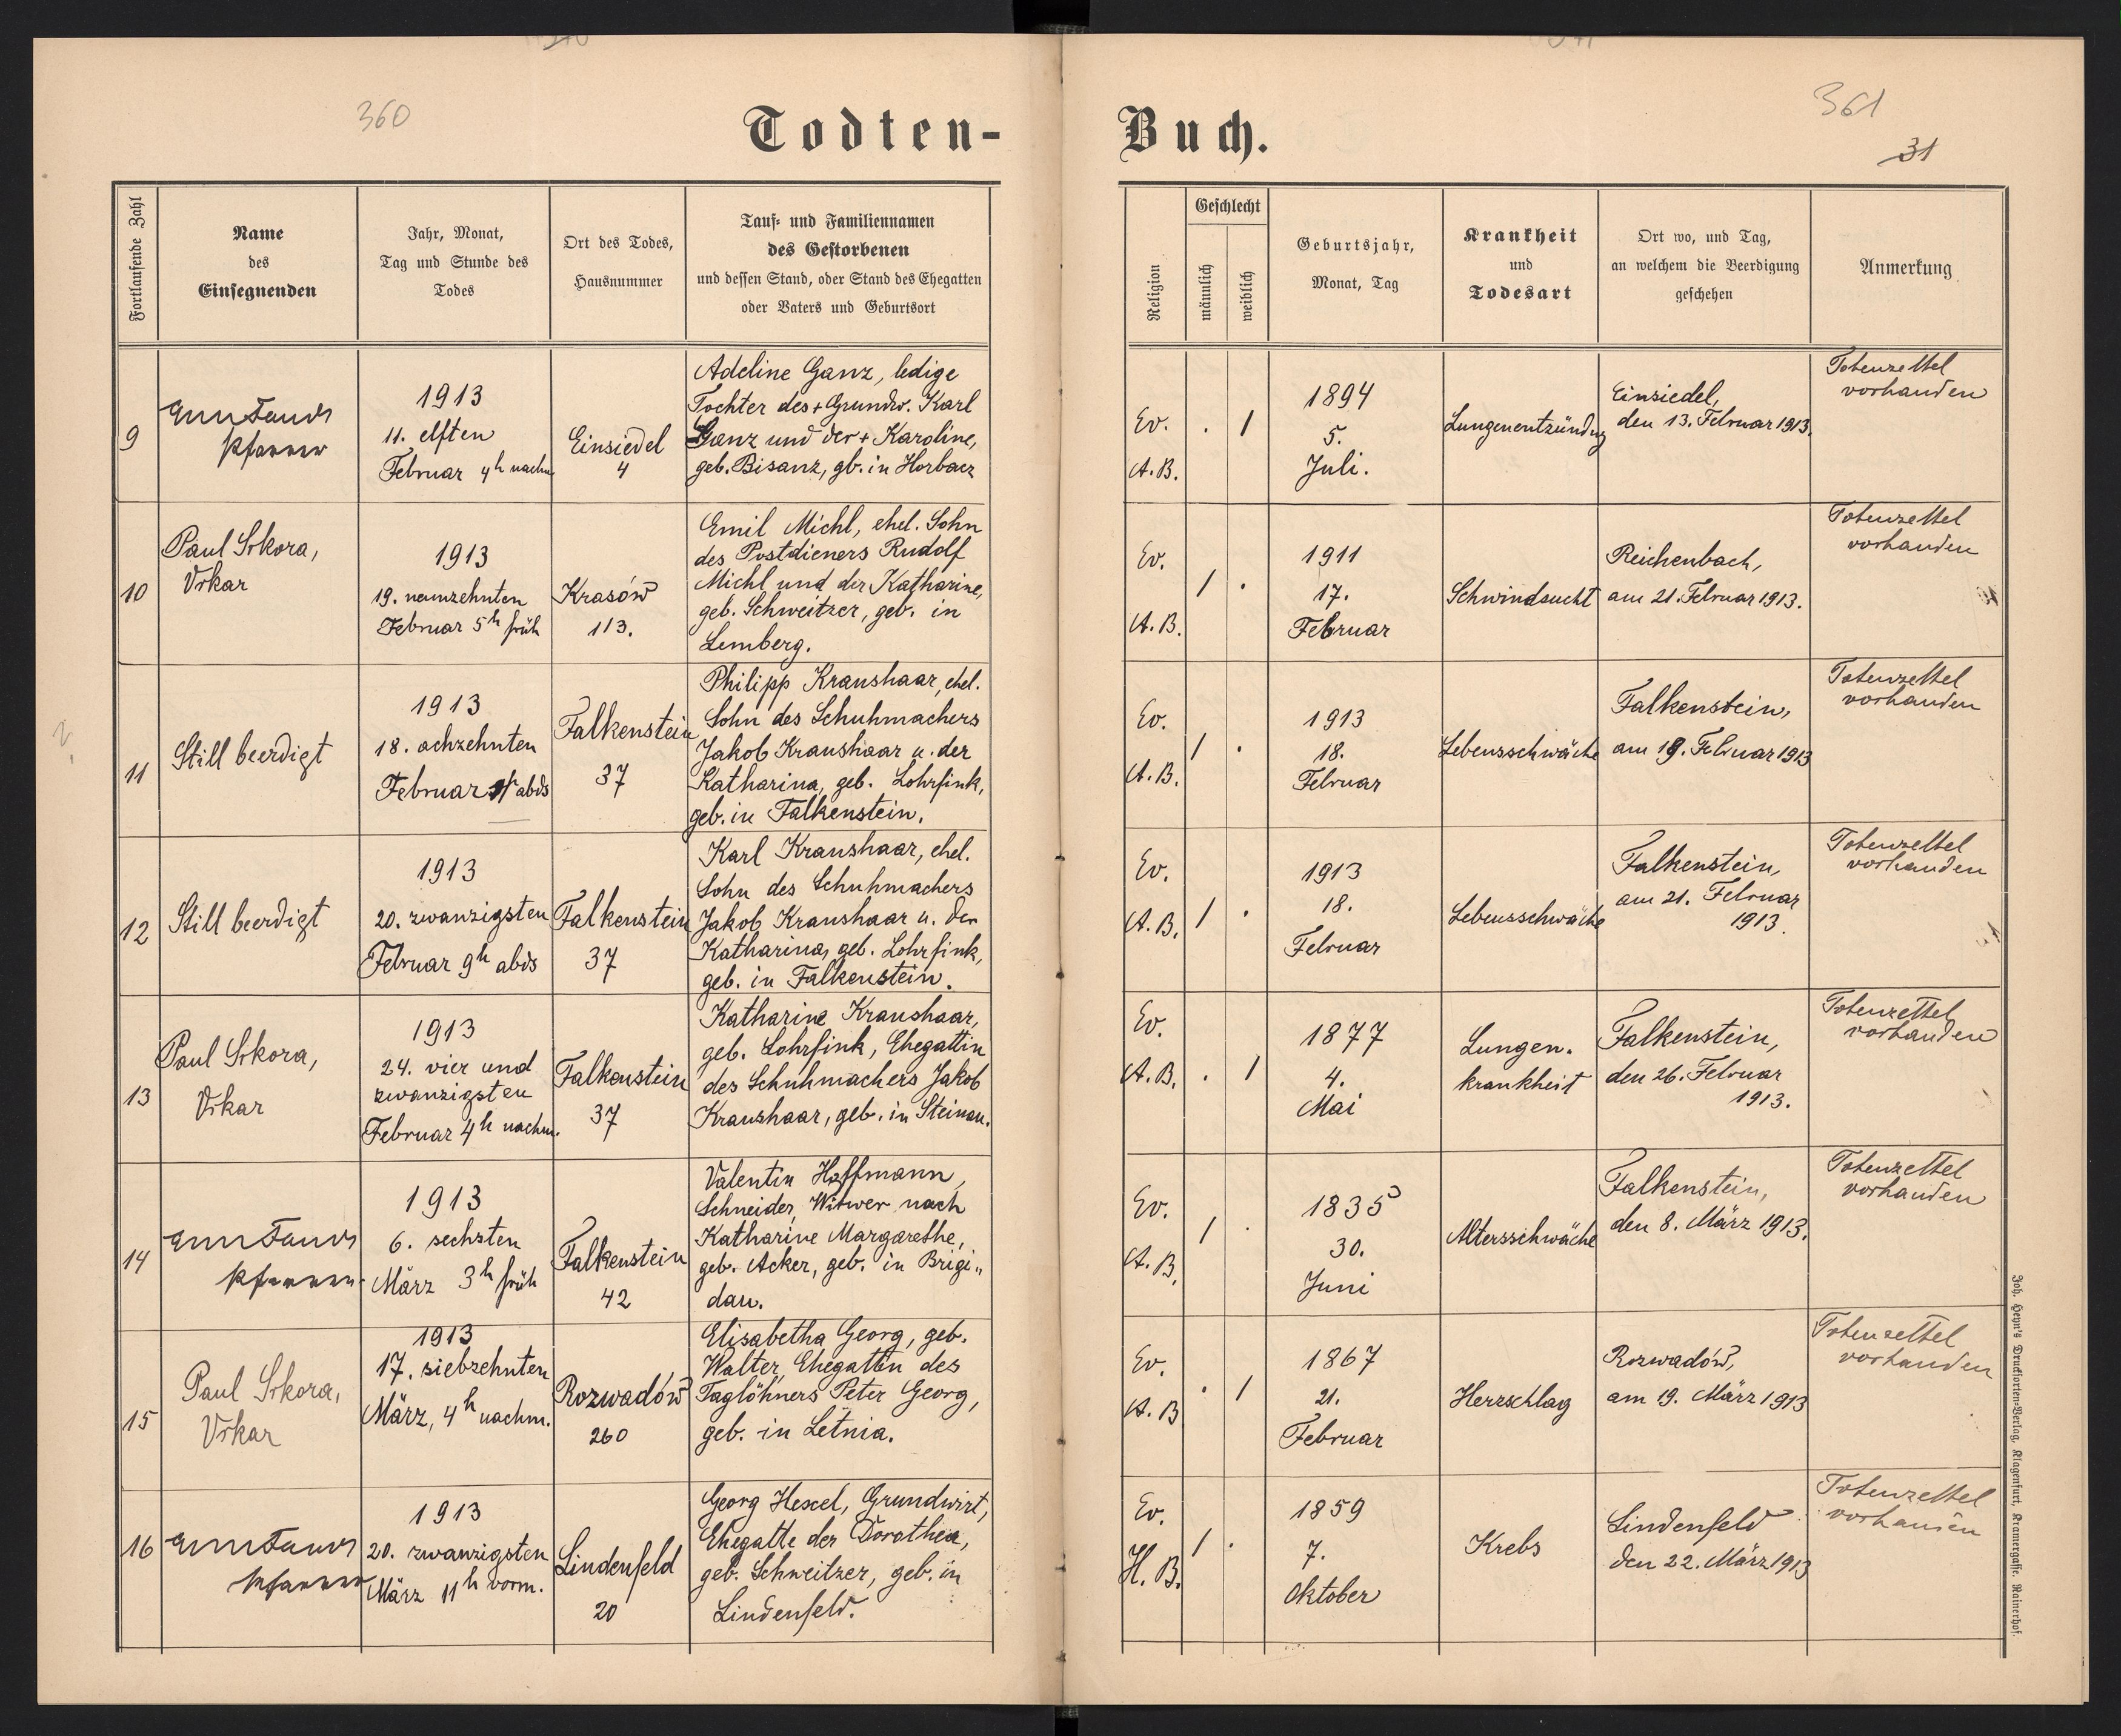 360
361
31
Todten-
Buch.
Fortlaufende Zahl
Name
des
Einsegnenden
Jahr, Monat,
Tag und Stunde des
Todes
Ort des Todes,
Hausnummer
Tauf- und Familiennamen
des Gestorbenen
und dessen Stand, oder Stand des Ehegatten
oder Vaters und Geburtsort
Religion
Geschlecht
männlich
weiblich
Geburtsjahr,
Monat, Tag
Krankheit
und
Todesart
Ort wo, und Tag,
an welchem die Beerdigung
geschehen
Anmerkung
9
Pfarrer
1913
11. elften
Februar 4h nachm
Einsiedel
4
Adeline Ganz, ledige
Tochter des + Grundw. Karl
Ganz und der + Karoline,
geb. Bisanz, gb. in Horbacz
Ev.
A.B.
. 1
1894
5.
Juli.
Lungenentzündng
Einsiedel,
den 13. Februar 1913.
Totenzettel
vorhanden
10
Paul Sikora,
Vikar
1913
19. neunzehnten
Februar 5h früh
Krasów
113.
Emil Michl, ehel. Sohn
des Postdieners Rudolf
Michl und der Katharine,
geb. Schweitzer, geb. in
Lemberg.
Ev.
A.B.
1 .
1911
17.
Februar
Schwindsucht
Reichenbach,
am 21. Februar 1913.
Totenzettel
vorhanden
11
Still beerdigt
1913
18. achzehnten
Februar abds
Falkenstein
37
Philipp Kraushaar, ehel.
Sohn des Schuhmachers
Jakob Kraushaar u. der
Katharina, geb. Lohrfink,
geb. in Falkenstein.
Ev.
A.B.
1 .
1913
18.
Februar
Lebensschwäche
Falkenstein,
am 19. Februar 1913
Totenzettel
vorhanden
12
Still beerdigt
1913
20. zwanzigsten
Februar 9h abds
Falkenstein
37
Karl Kraushaar, ehel.
Sohn des Schuhmachers
Jakob Kraushaar u. der
Katharina, geb. Lohrfink,
geb. in Falkenstein.
Ev.
A.B.
1 .
1913
18.
Februar
Lebensschwäche
Falkenstein,
am 21. Februar
1913.
Totenzettel
vorhanden
13
Paul Sikora,
Vikar
1913
24. vier und
zwanzigsten
Februar 4h nachm.
Falkenstein
37
Katharine Kraushaar,
geb. Lohrfink, Ehegattin
des Schuhmachers Jakob
Kraushaar, geb. in Steinau.
Ev.
A.B.
. 1
1877
4.
Mai
Lungen-
krankheit
Falkenstein,
den 26. Februar
1913.
Totenzettel
vorhanden
14
Pfarrer
1913
6. sechsten
März 3h früh
Falkenstein
42
Valentin Hoffmann,
Schneider, Witwer nach
Katharine Margarethe,
geb. Acker, geb. in Brigi„
dau.
Ev.
A.B.
1 .
1835
30.
Juni
Altersschwäche
Falkenstein,
den 8. März 1913.
Totenzettel
vorhanden
15
Paul Sikora,
Vikar
1913
17. siebzehnten
März, 4h nachm.
Rozwadów
260
Elisabetha Georg, geb.
Walter, Ehegattin des
Taglöhners Peter Georg,
geb. in Letnia.
Ev.
A.B
. 1
1867
21.
Februar
Herzschlag
Rozwadów,
am 19. März 1913
Totenzettel
vorhanden
16
Pfarrer
1913
20. zwanzigsten
März 11h vorm.
Lindenfeld
20
Georg Hexel, Grundwirt,
Ehegatte der Dorothea,
geb. Schweitzer, geb. in
Lindenfeld.
Ev.
H.B.
1 .
1859
7.
Oktober
Krebs
Lindenfeld
den 22. März 1913
Totenzettel
vorhanden
Joh. Heyn's Drucksorten-Verlag, Klagenfurt, Kramergasse. Rainerhof.